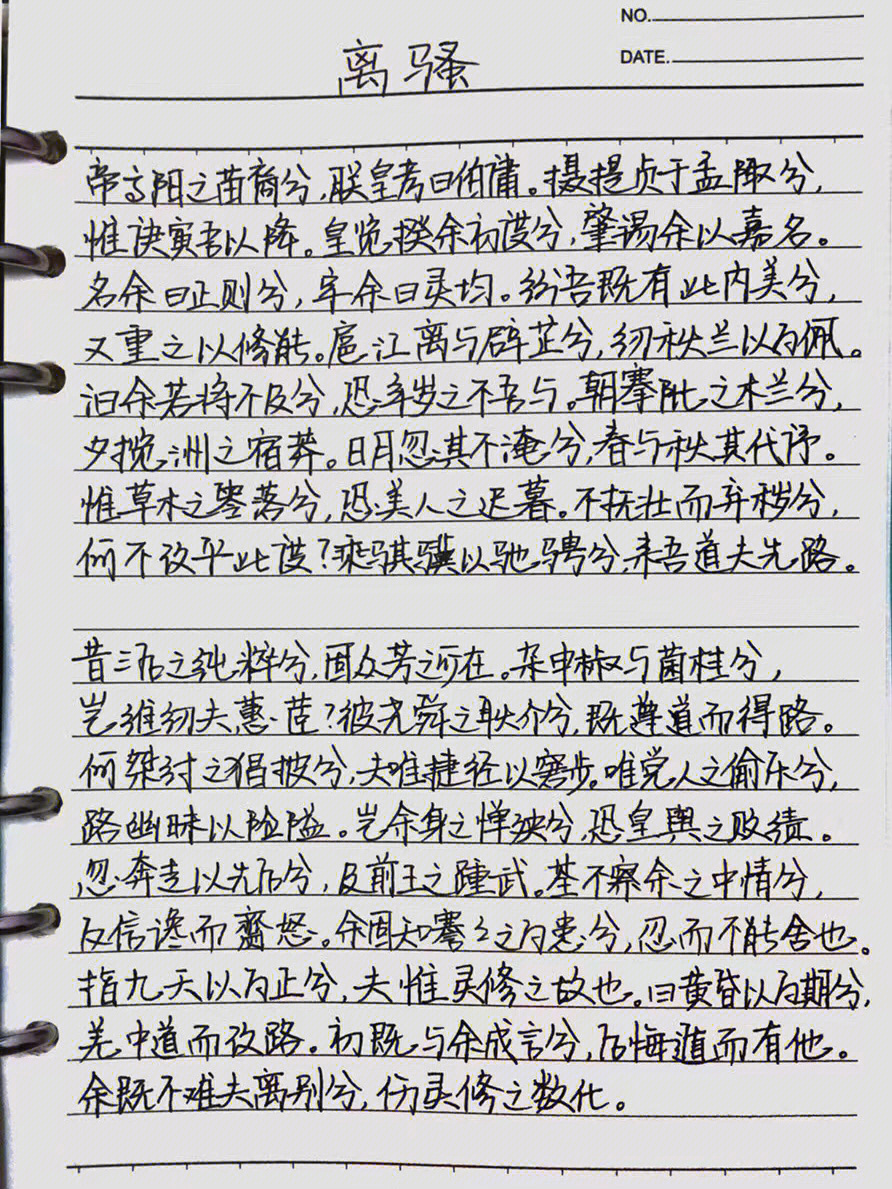 NO.
DATE.
离骚
帝高阳之苗裔兮,联皇考曰伯庸。摄提贞于孟陬兮,
惟诀寅吾以降。皇览揆余初度兮,肇锡余以嘉名。
名余曰正则兮,字余曰灵均。纷吾既有此内美兮,
又重之以修能。扈江离与辟芷兮,纫秋兰以为佩。
汩余若将不及兮,恐年岁之不吾与。朝搴阰之木兰兮,
夕揽洲之宿莽。日月忽其不淹兮,春与秋其代序。
惟草木之零落兮,恐美人之迟暮。不抚壮而弃秽兮,
何不改乎此度?乘骐骥以驰骋兮,来吾道夫先路。
昔三后之纯粹兮,固众芳之所在。杂申椒与菌桂兮,
岂维纫夫蕙茝?彼尧舜之耿介兮,既遵道而得路。
何桀纣之猖披兮,夫唯捷径以窘步。唯党人之偷乐兮,
路幽昧以险隘。岂余身之惮殃兮,恐皇舆之败绩。
忽奔走以先后兮,及前王之踵武。荃不察余之中情兮,
反信谗而齌怒。余固知謇々之为患兮,忍而不能舍也。
指九天以为正兮,夫惟灵修之故也。曰黄昏以为期兮,
羌中道而改路。初既与余成言兮,后悔遁而有他。
余既不难夫离别兮,伤灵修之数化。